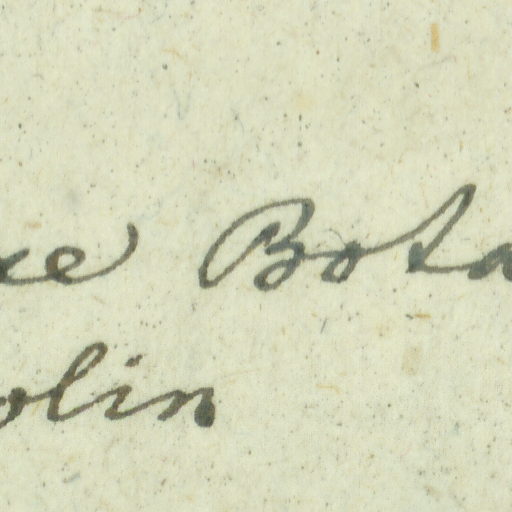 xe Bota
olin